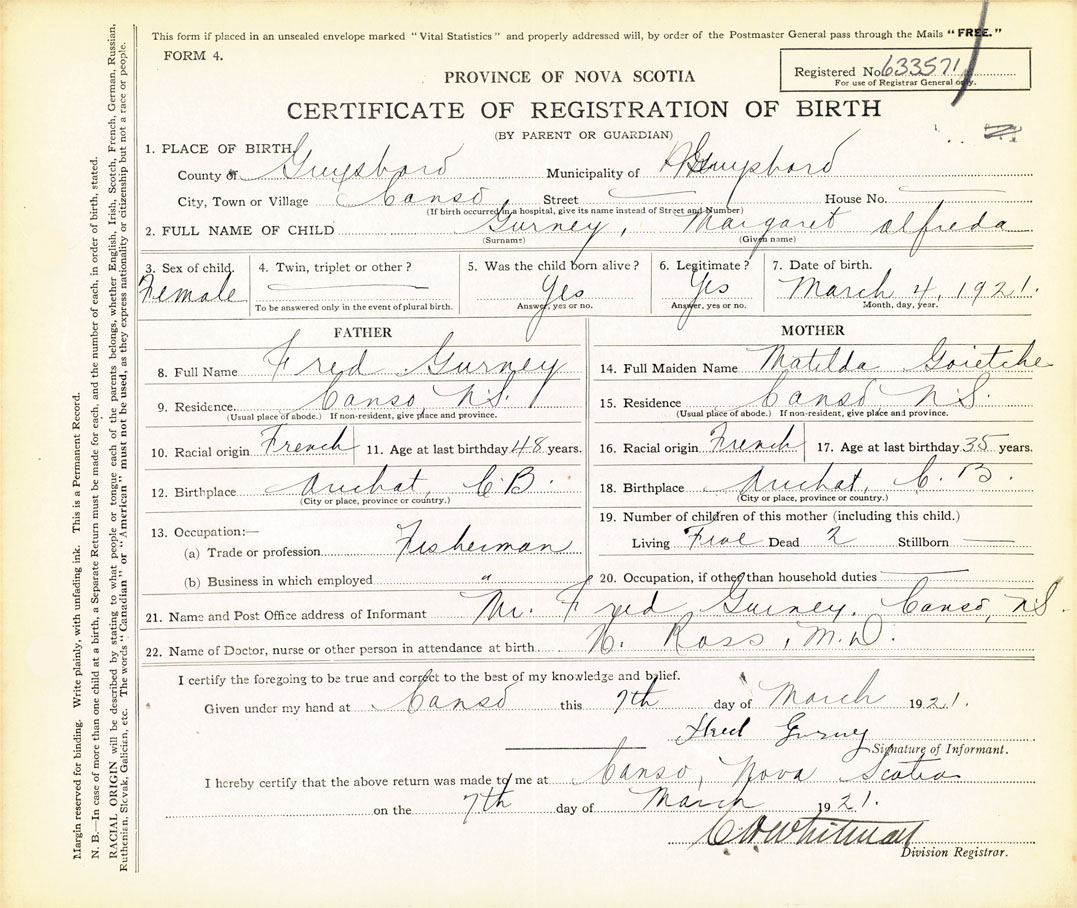 This form if placed in an unsealed envelope marked "Vital Statistics" and properly addressed will, by order of the Postmaster General pass through the Mails "FREE."
FORM 4.
Registered No. 633571
For use of Registrar General only.
PROVINCE OF NOVA SCOTIA
CERTIFICATE OF REGISTRATION OF BIRTH
(BY PARENT OR GUARDIAN)
1. PLACE OF BIRTH,
County of Guysboro Municipality of Guysboro
City, Town or Village Canso Street House No.
(If birth occurred in a hospital, give its name instead of Street and Number)
2. FULL NAME OF CHILD Gurney, Margaret Alfreda
(Surname) (Given name)
3. Sex of child. 4. Twin, triplet or other? 5. Was the child born alive? 6. Legitimate? 7. Date of birth.
Female Yes Yes March 4, 1921.
To be answered only in the event of plural birth. Answer, yes or no. Answer, yes or no. Month, day, year.
FATHER MOTHER
8. Full Name Fred Gurney 14. Full Maiden Name Matilda Goietche
9. Residence. Canso, N.S. 15. Residence Canso N.S.
(Usual place of abode.) If non-resident, give place and province. (Usual place of abode.) If non-resident, give place and province.
10. Racial origin French 11. Age at last birthday 48 years. 16. Racial origin French 17. Age at last birthday 35 years.
12. Birthplace Arichat, C.B. 18. Birthplace Arichat, C.B.
(City or place, province or country.) (City or place, province or country.)
13. Occupation:— 19. Number of children of this mother (including this child.)
(a) Trade or profession Fisherman Living Five Dead 2 Stillborn
(b) Business in which employed " 20. Occupation, if other than household duties
21. Name and Post Office address of Informant Mr. Fred Gurney. Canso, N.S.
22. Name of Doctor, nurse or other person in attendance at birth N. Ross, M.D.
I certify the foregoing to be true and correct to the best of my knowledge and belief.
Given under my hand at Canso this 7th day of March 1921.
Fred Gurney
Signature of Informant.
I hereby certify that the above return was made to me at Canso, Nova Scotia
on the 7th day of March 1921.
Whitman
Division Registrar.
Margin reserved for binding. Write plainly, with unfading ink. This is a Permanent Record.
N. B.—In case of more than one child at a birth, a Separate Return must be made for each, and the number of each, in order of birth, stated.
RACIAL ORIGIN will be described by stating to what people or tongue each of the parents belongs, whether English, Irish, Scotch, French, German, Russian,
Ruthenian, Slovak, Galician, etc. The words "Canadian" or "American" must not be used, as they express nationality or citizenship but not a race or people.